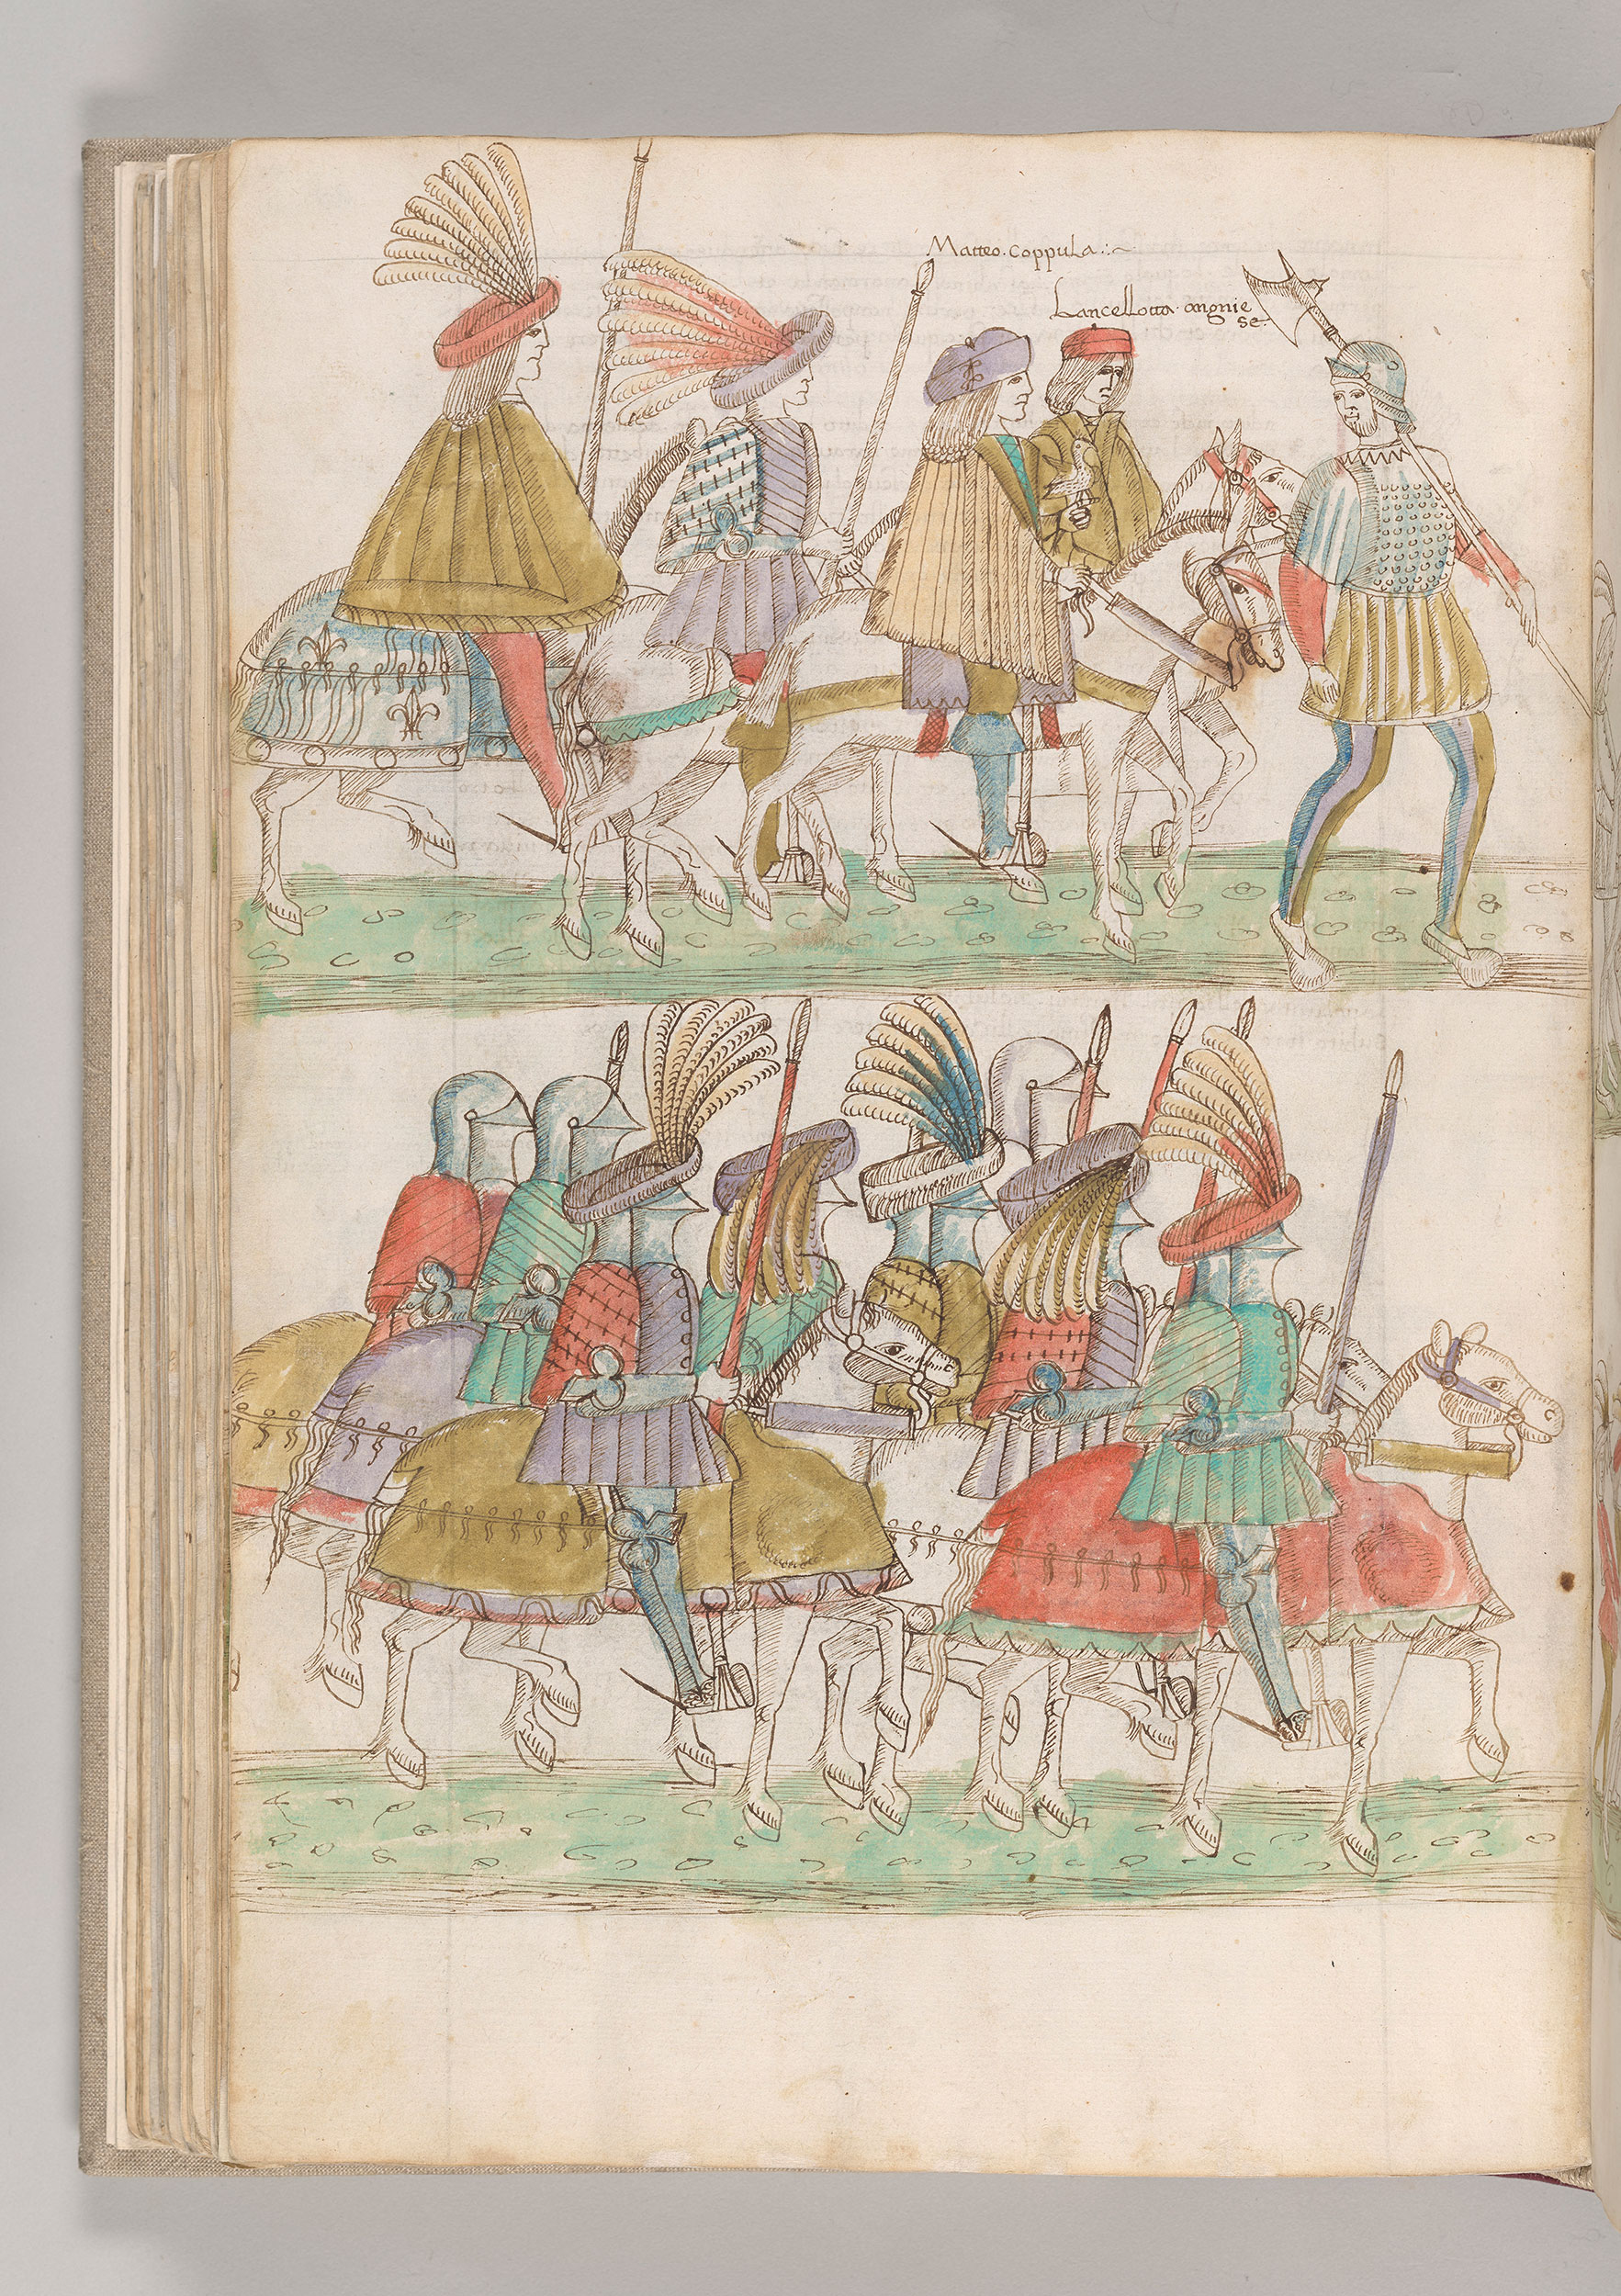 Matteo. Coppula :~
Lancellotta. angnie
se.